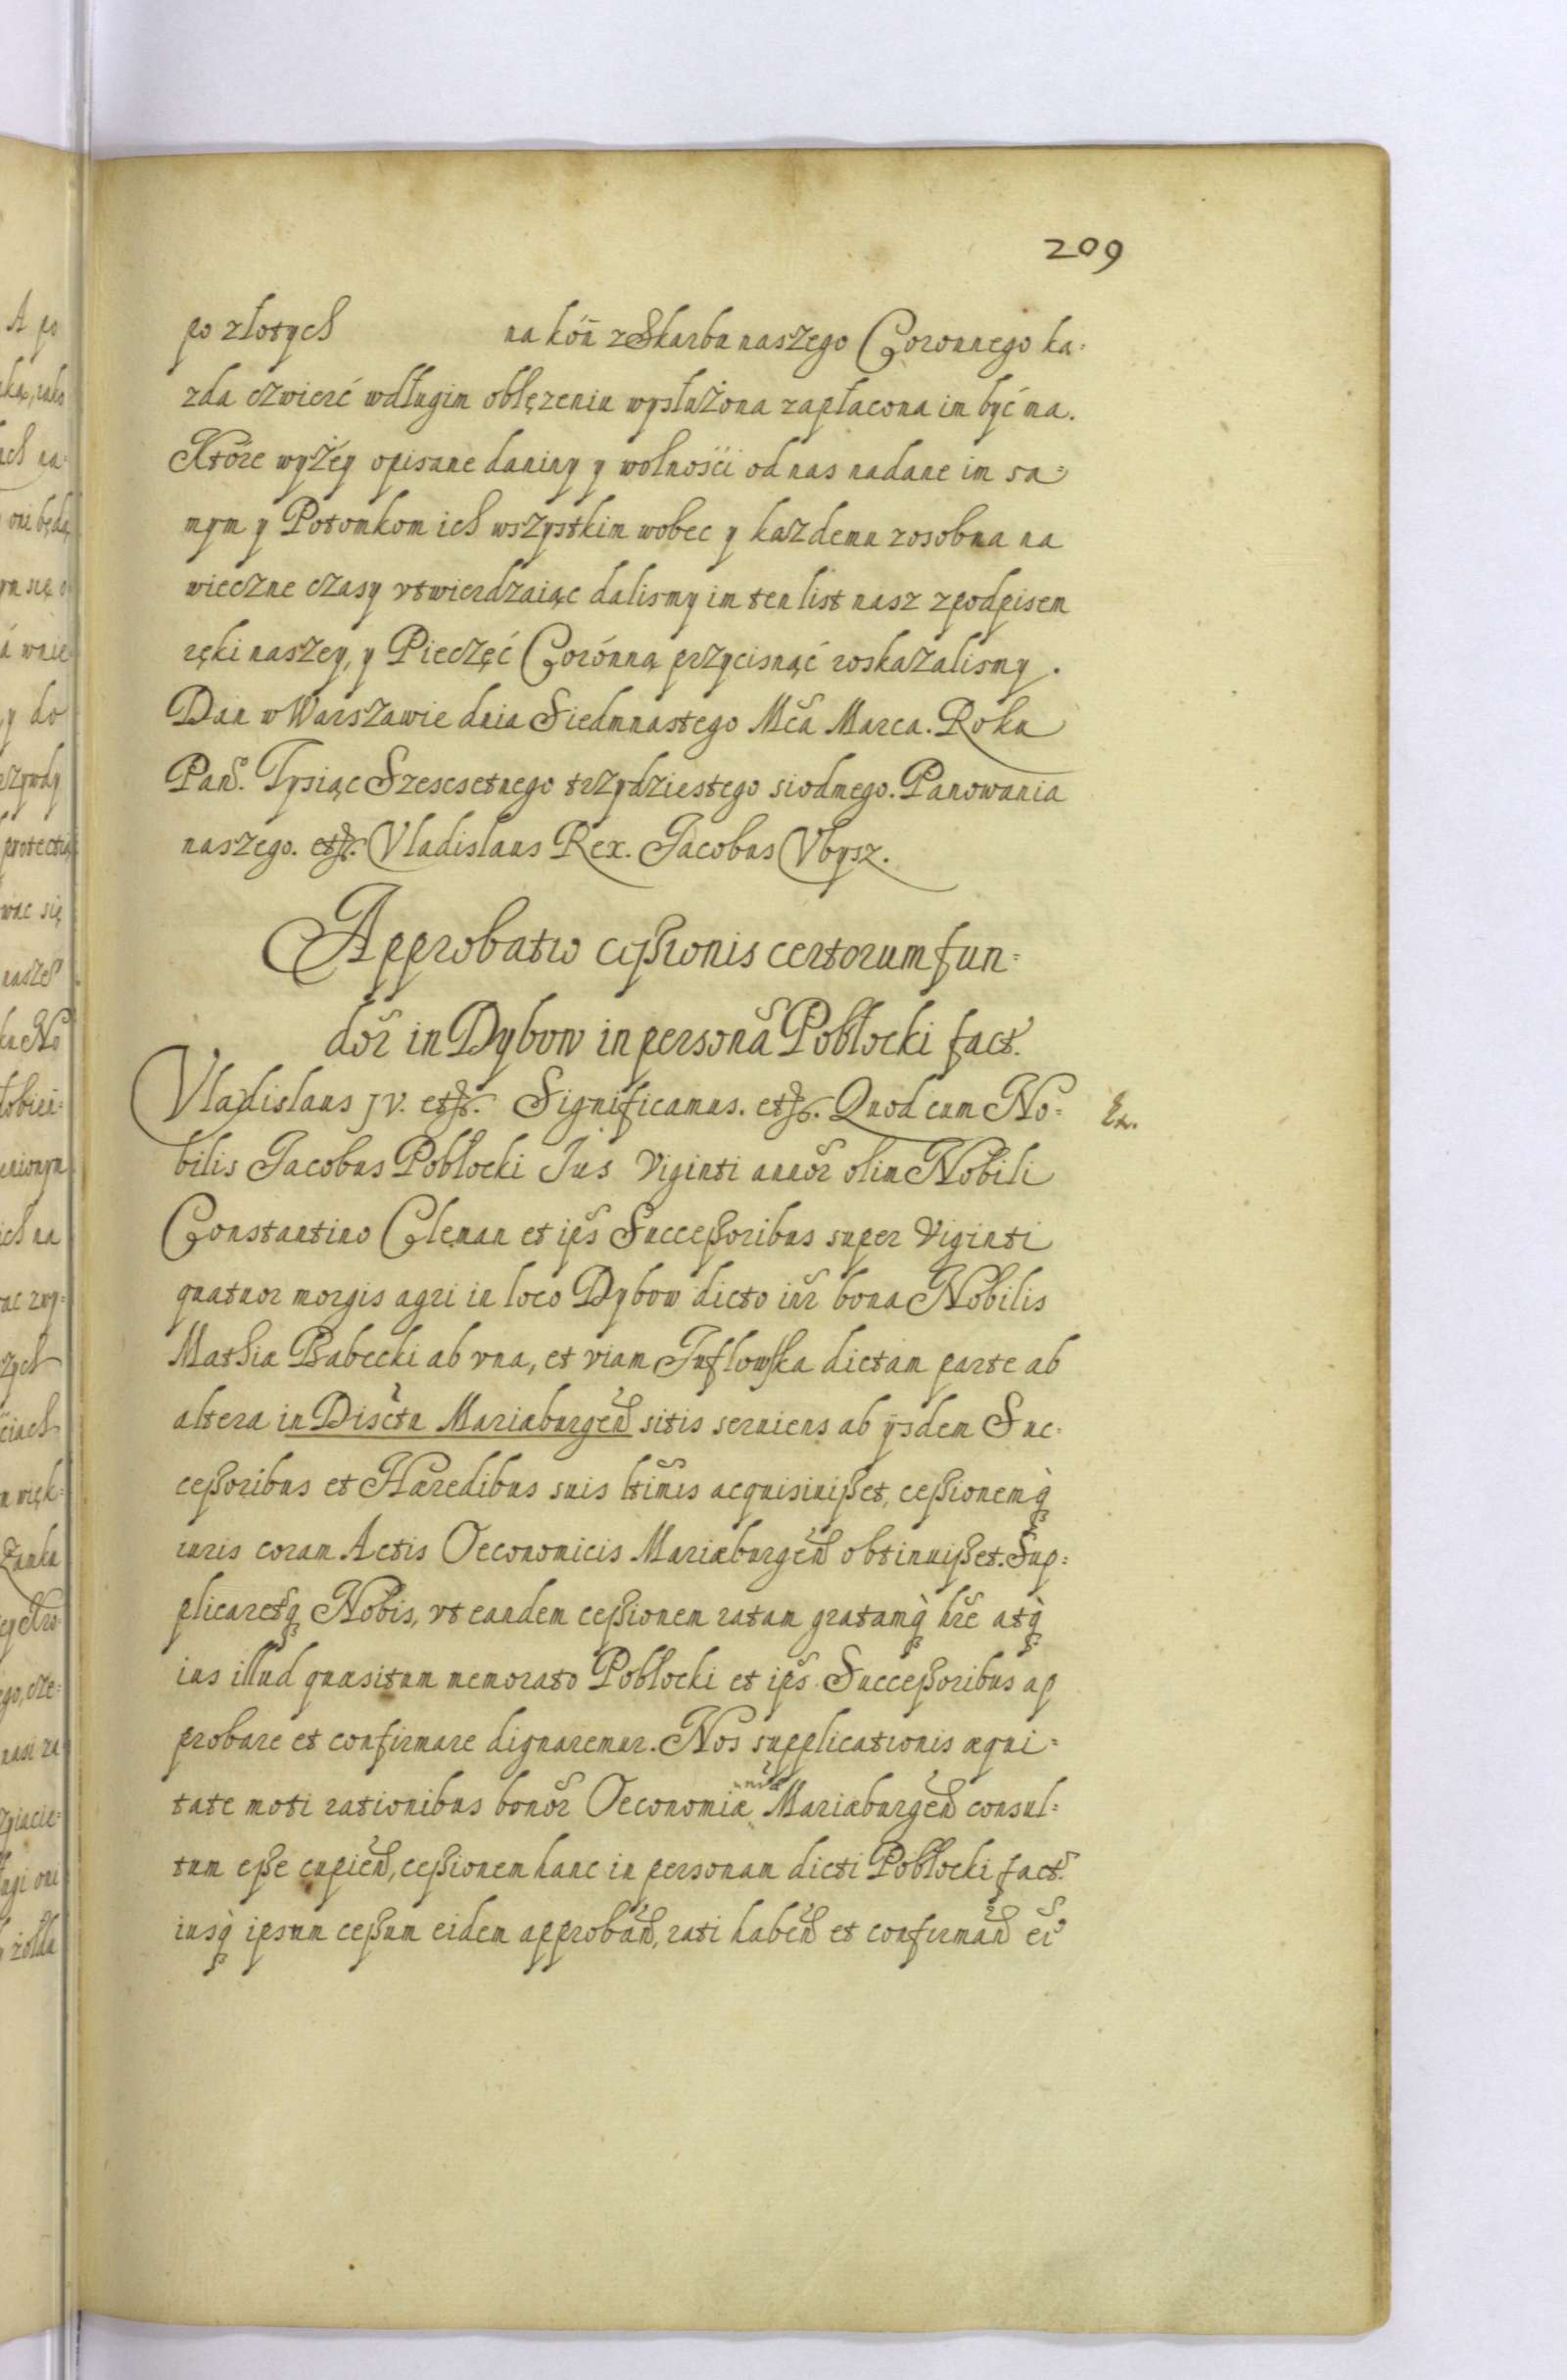 209
po złotych na kón̄ z Skarbu naszego Coronnego ka=
zda czwierć w długim oblęzeniu wysłużona zapłacona im być ma.
Które wyżéy opisane daniny y wolności od nas nadane im sa=
mym y Potomkom ich wszystkim wobec y kazdemu zosobna na
wieczne czasy vtwierdzaiąc dalismy im ten list nasz z podpisem
ręki naszey, y Pieczęć Corónną przycisnąć roskazalismy.
Dan w Warszawie dnia Siedmnastego Mc̃a Marca. Roku
Pans. Tysiąc Szescsetnego trzydziestego siodmego. Panowania
naszego. etc. Vladislaus Rex. Jacobus Vbysz.
Approbatio cessionis certorum fun=
dor̃ in Dybow in persona͂ Pobłocki fact.
Vladislaus IV. etc. Significamus. etc. Quod cum No=
bilis Jacobus Pobłocki Jus viginti annor̃ olim Nobili
Constantino Cleman et ips̃ Successoribus super viginti
quatuor morgis agri in loco Dybow dicto int̃r bona Nobilis
Mathiæ Babecki ab vna, et viam dictam parte ab
altera in Disctu Mariæburgeñ sitis seruiens ab ijsdem Suc=
cessoribus et Hæredibus suis ltimis acquisiuisset, cessionemq̀
iuris coram Actis Oeconomicis Mariæburgeñ obtinuisset. Sup=
plicaretq̀ Nobis, vt eandem cessionem ratam gratamq̀ hr̃e atq̀
ius illud quæsitum memorato Pobłocki et ips̃ Successoribus ap
probare et confirmare dignaremur. Nos supplicationis æqui=
tate moti rationibus bonor̃ Oeconomiæ Mariæburgeñ consul=
tum esse cupieñ, cessionem hanc in personam dicti Pobłocki fact.
iusq̀ ipsum cessum eidem approbañ, rati habeñ et confirmañ ei